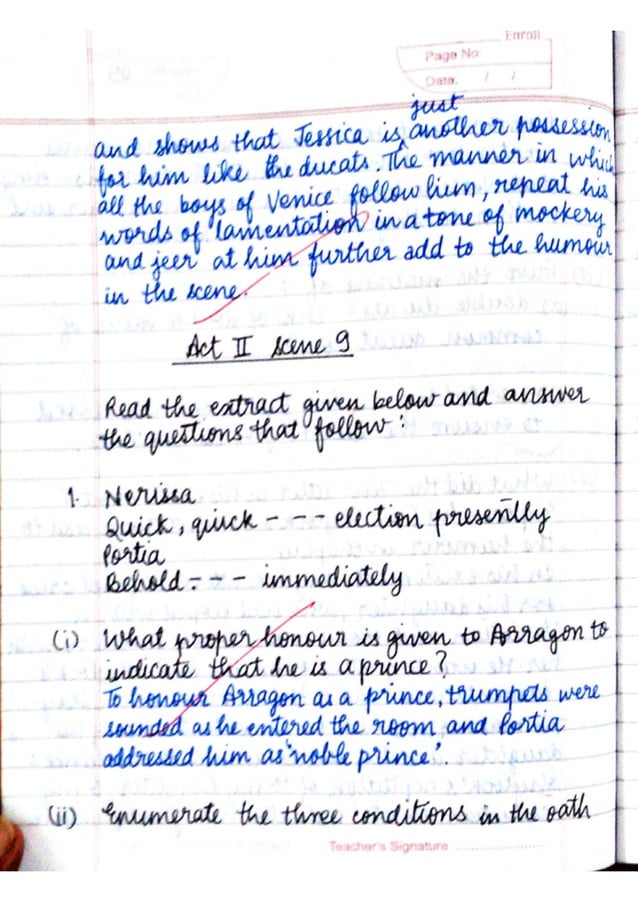 Enroll
Page No:
Date: / /
just
and shows that Jessica is, another possession
for him like the ducats. The manner in which
all the boys of Venice follow him, repeat his
words of lamentation in a tone of mockery
and jeer at him further add to the humour
in the scene.
Act II scene 9
Read the extract given below and answer
the questions that follow:
1. Nerissa
Quick, quick - - - election presently
Portia
Behold - - - immediately
(i) What proper honour is given to Arragon to
indicate that he is a prince?
To honour Arragon as a prince, trumpets were
sounded as he entered the room and Portia
addressed him as 'noble prince'.
(ii) Enumerate the three conditions in the oath
Teacher's Signature ....................